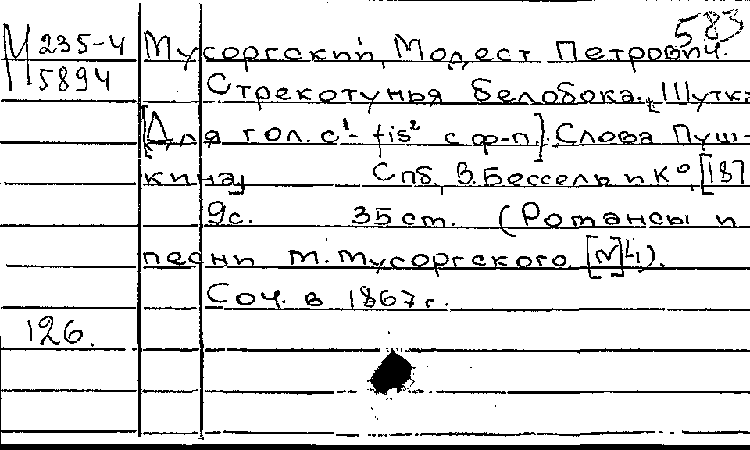 583
М 235-4 Мусоргский, Модест Петрович.
5894 Стрекотунья белобока. Шутка
[Для гол. c¹- fis² с ф-п.] Слова Пуш-
кина, Спб, В. Бессель и К°, [187
9с. 35 ст. (Романсы и
песни М. Мусоргского [N] 4).
Соч. в 1867 г.
126.